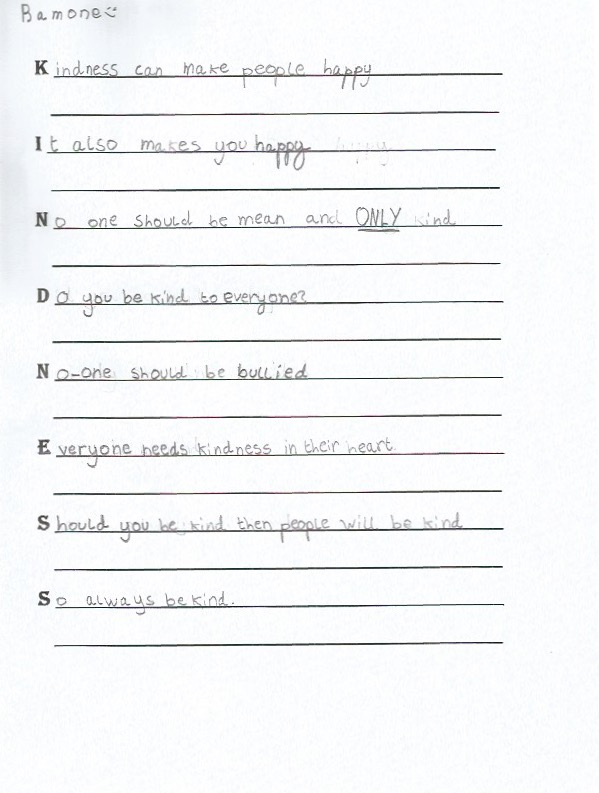 Bamone
Kindness can make people happy
It also makes you happy
No one should be mean and ONLY kind
Do you be kind to everyone?
No-one should be bullied
Everyone needs kindness in their heart.
Should you be kind then people will be kind
So always be kind.